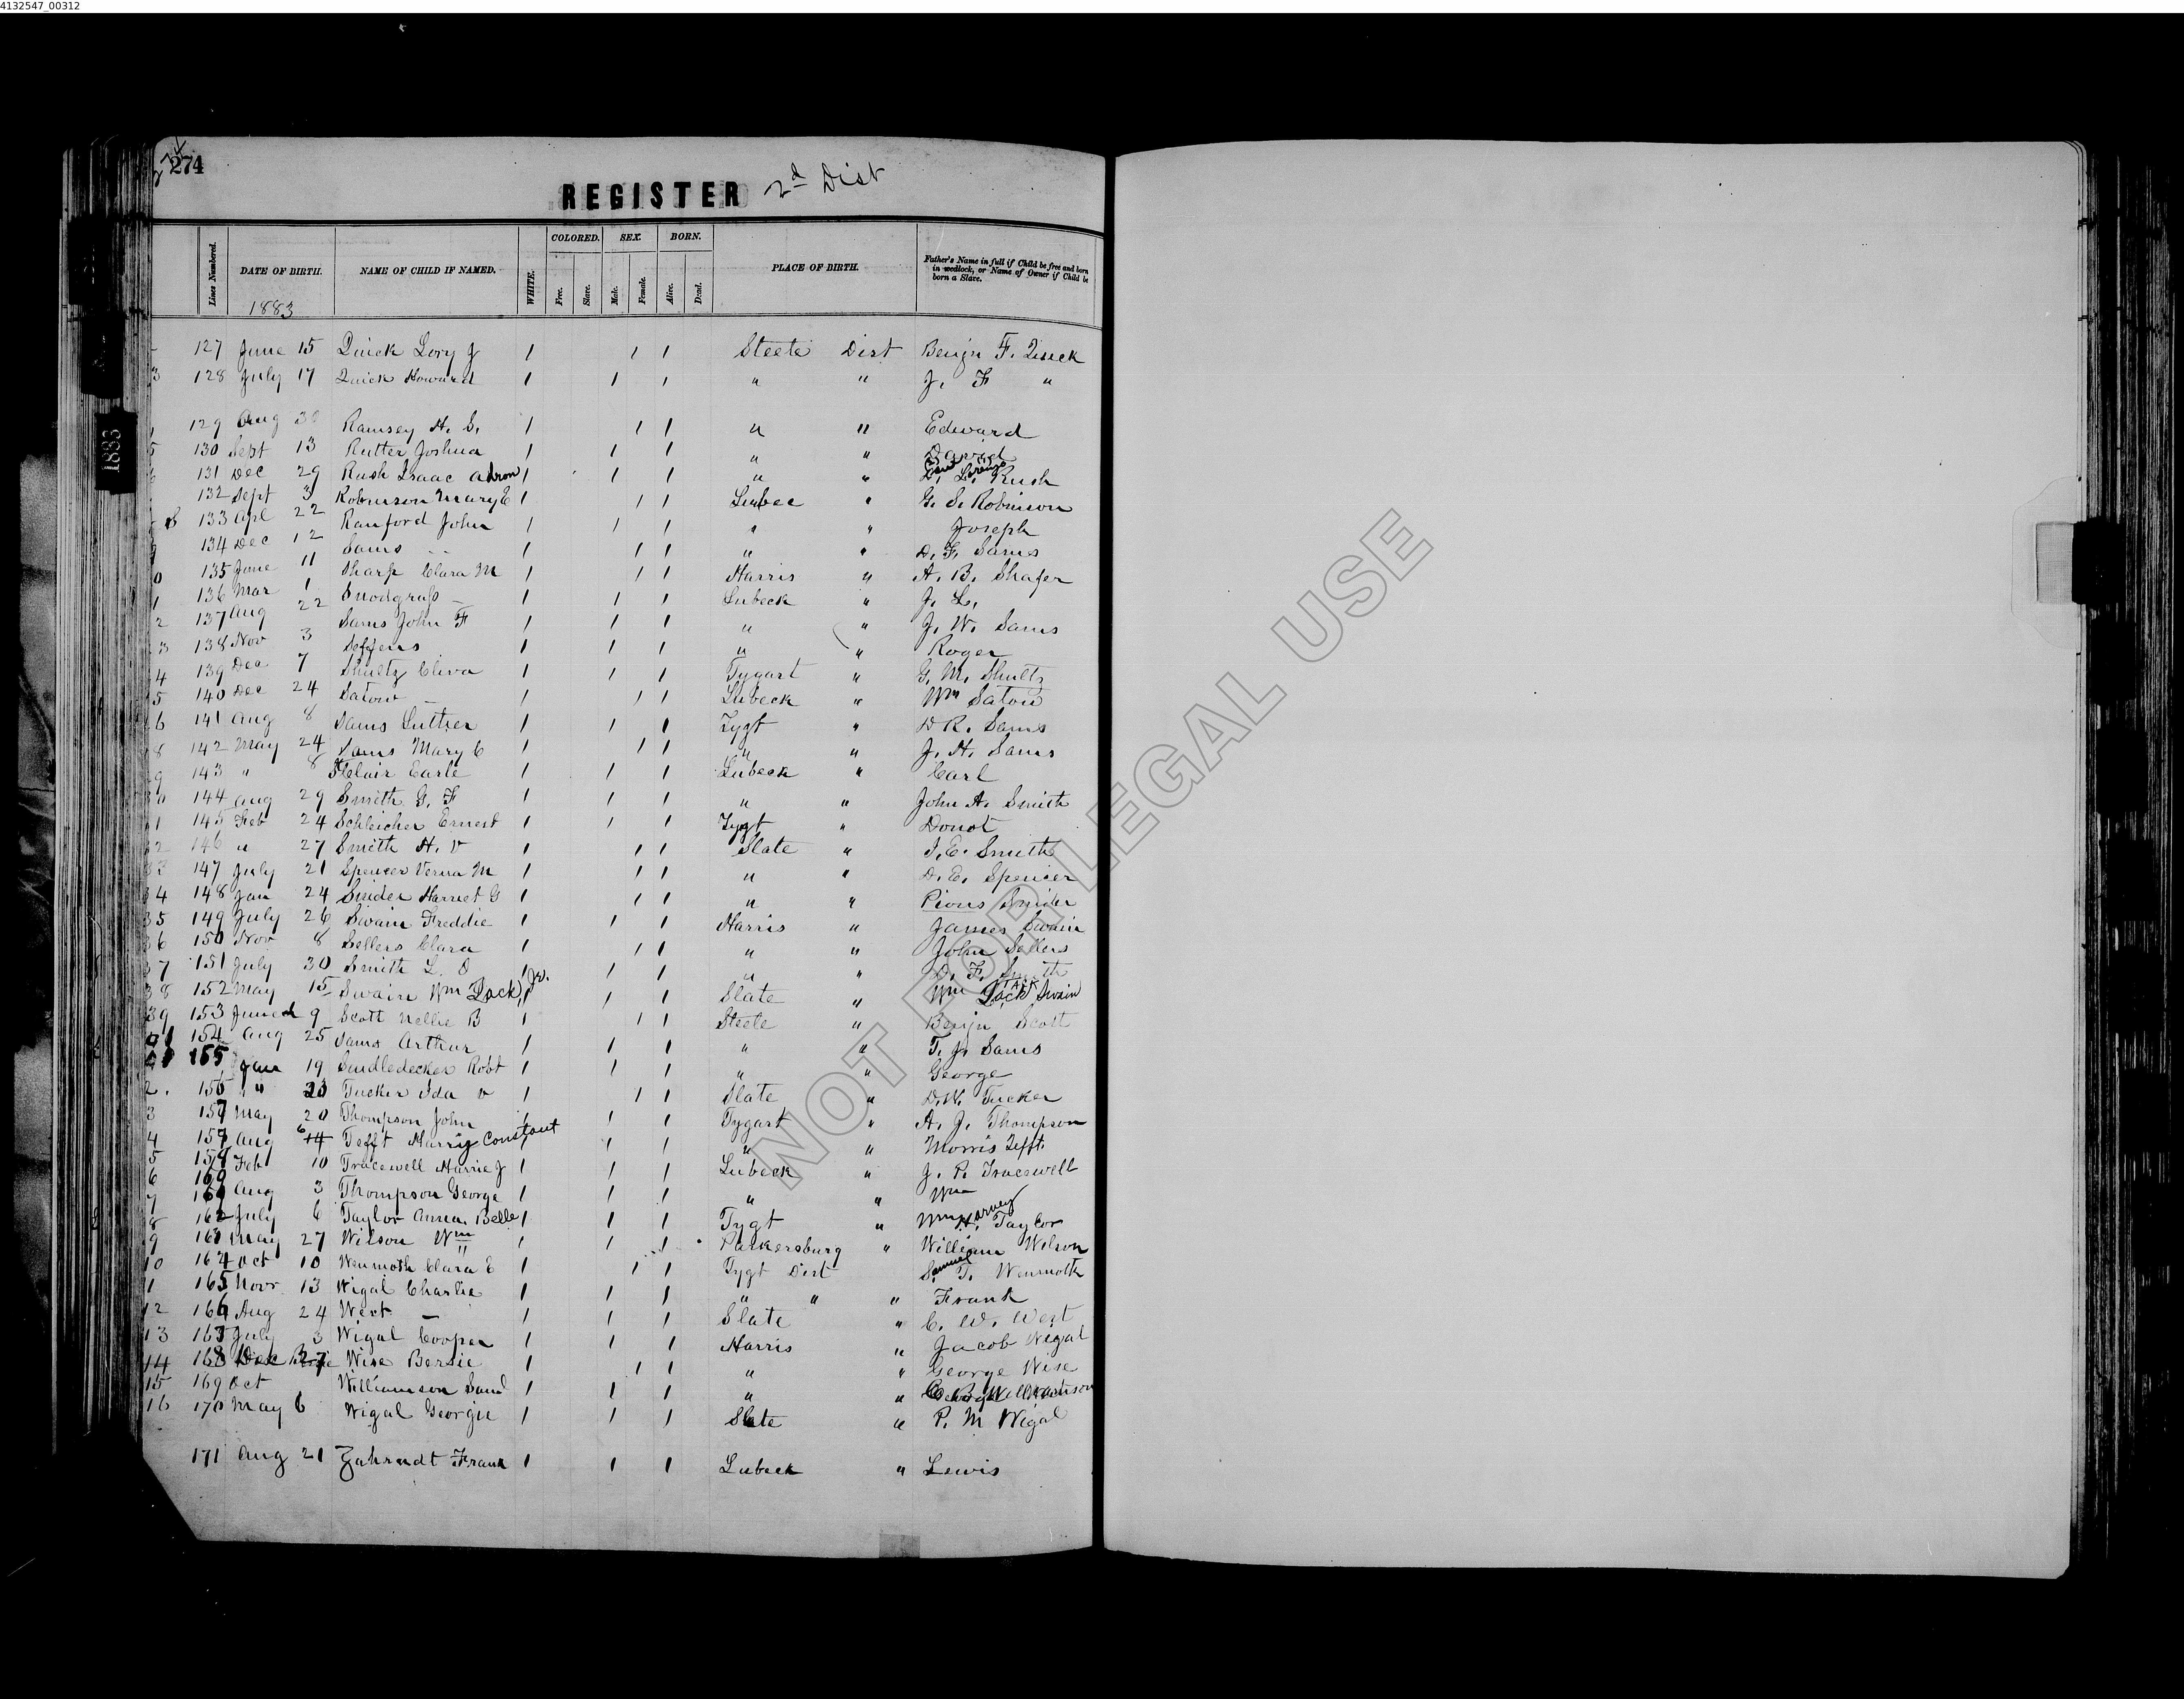 4132547_00312
274
REGISTER 2d Dist
Lines Numbered. DATE OF BIRTH. NAME OF CHILD IF NAMED. WHITE. COLORED. SEX. BORN. PLACE OF BIRTH. Father's Name in full if Child be free and born in wedlock, or Name of Owner if Child be born a Slave.
Free. Slave. Male. Female. Alive. Dead.
1883
127 June 15 Quick Lory J 1 1 1 Steele Dist Benjn F. Quick
128 July 17 Quick Howard 1 1 1 " " J. F "
129 Aug 30 Ramsey H. S. 1 1 1 " " Edward
130 Sept 13 Rutter Joshua 1 1 1 " " David
131 Dec 29 Rush Isaac Adron 1 1 1 " " D. L. Rush
132 Sept 3 Robinson Mary E 1 1 1 Lubec " G. S. Robinson
133 Apl 22 Ranford John 1 1 1 " " Joseph
134 Dec 12 Sams -- 1 1 1 " " D. F. Sams
135 June 11 Sharp Clara M 1 1 1 Harris " A. B. Shafer
136 Mar 1 Snodgrass — 1 1 1 Lubeck " J. L.
137 Aug 22 Sams John F 1 1 1 " " J. W. Sams
138 Nov 3 Seffens 1 1 1 " " Roger
139 Dec 7 Shultz Cliva 1 1 1 Tygart " G. M. Shultz
140 Dec 24 Satow — 1 1 1 Lubeck " Wm Satow
141 Aug 8 Sams Luther 1 1 1 Tygt " D R. Sams
142 May 24 Sams Mary C 1 1 1 " " J. H. Sams
143 " 8 StClair Earle 1 1 1 Lubeck " Carl
144 Aug 29 Smith G. F 1 1 1 " " John A. Smith
145 Feb 24 Schleicher Ernest 1 1 1 Tygt " Donot
146 " 27 Smith H. V 1 1 1 Slate " J. E. Smith
147 July 21 Spencer Verna M 1 1 1 " " D. E. Spencer
148 Jan 24 Snider Harriet G 1 1 1 " " Pious Snider
149 July 26 Swain Freddie 1 1 1 Harris " James Swain
150 Nov 8 Sellers Clara 1 1 1 " " John Sellers
151 July 30 Smith L. O 1 1 1 " " D. F. Smith
152 May 15 Swain Wm Jack, Jr. 1 1 1 Slate " Wm Jack Swain
153 June 9 Scott Nellie B 1 1 1 Steele " Benjn Scott
154 Aug 25 Sams Arthur 1 1 1 " " T. J. Sams
155 Jan 19 Smdledecker Robt 1 1 1 " " George
156 " 23 Tucker Ida V 1 1 1 Slate " D. W. Tucker
157 May 20 Thompson John 1 1 1 Tygart " A. J. Thompson
Aug Tefft Harry Constant 1 1 1 " " Morris Tefft
159 Feb 10 Tracewell Harrie J 1 1 1 Lubeck " J. P. Tracewell
Aug 3 Thompson George 1 1 1 " " Wm
162 July 6 Taylor Anna Belle 1 1 1 Tygt " Wm Harvey Taylor
May 27 Wilson Wm 1 1 1 Parkersburg " William Wilson
164 Oct 10 Wenmoth Clara E 1 1 1 Tygt Dist Samuel T. Wenmoth
165 Novr 13 Wigal Charlie 1 1 1 " " " Frank
166 Aug 24 West — 1 1 1 Slate " C. W. West
167 July 3 Wigal Cooper 1 1 1 Harris " Jacob Wigal
168 Dec 27 Wise Bersie 1 1 1 " " George Wise
169 Oct Williamson Saml 1 1 1 " " Williamson
170 May 6 Wigal Georgie 1 1 1 Slate " P. M Wigal
171 Aug 21 Zahrndt Frank 1 1 1 Lubeck " Lewis
1883
NOT FOR LEGAL USE